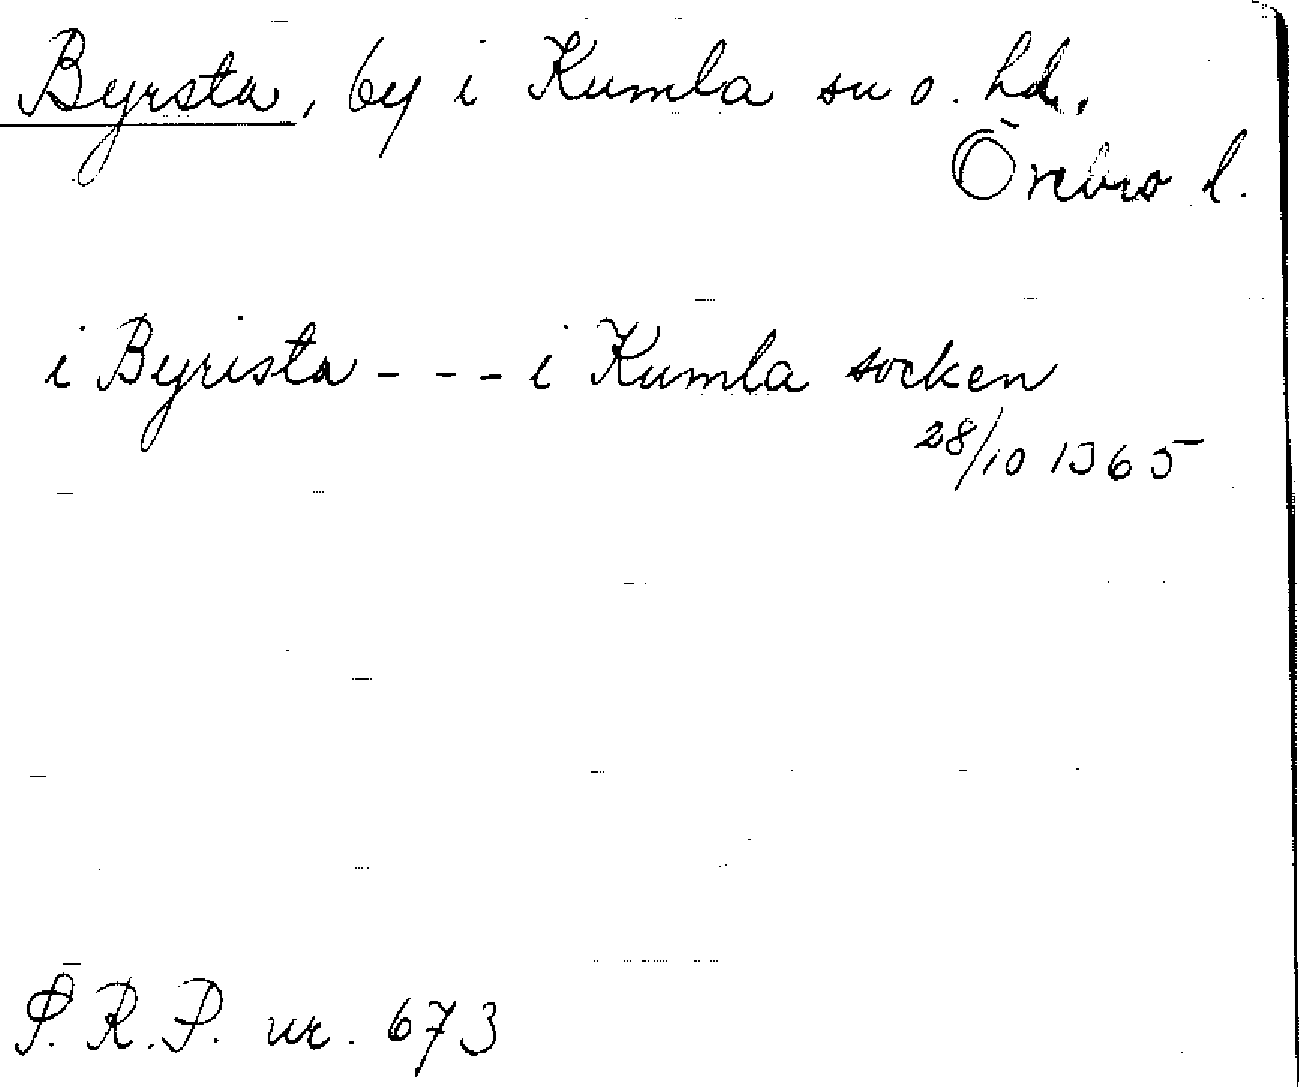 Byrsta, by i Kumla sn o. hd,
Örebro l.
i Byrista - - - i Kumla socken
28/10 1365
S.R.P. nr. 673